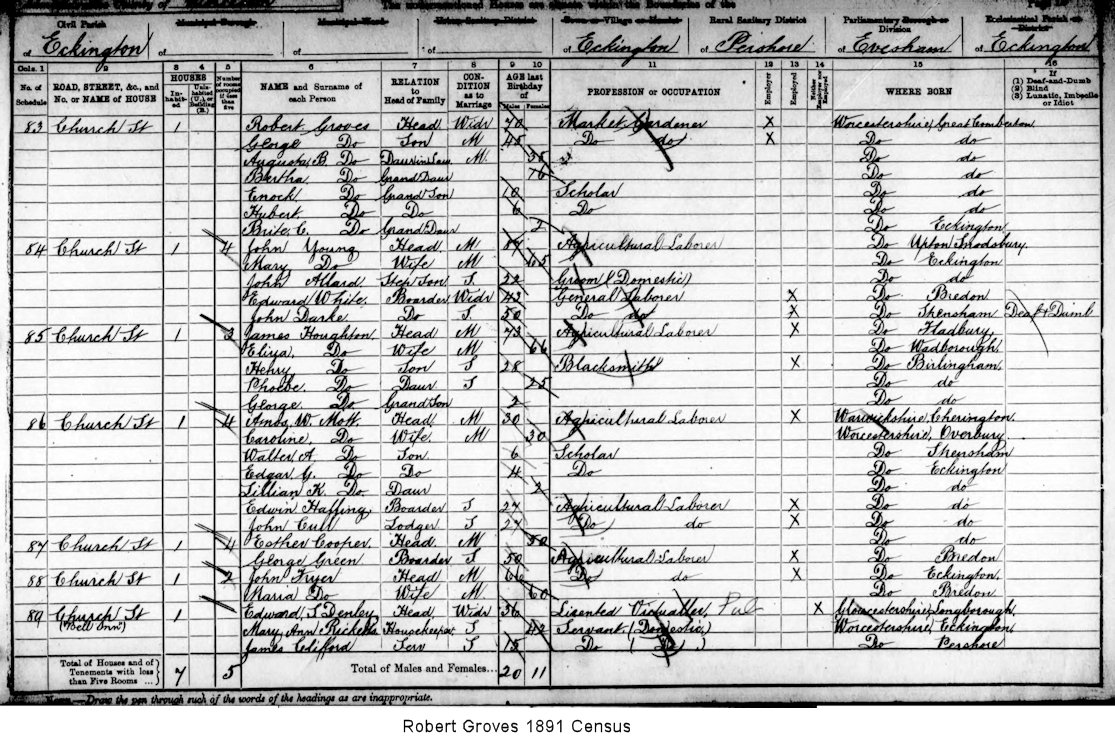 The undermentioned Houses are situate within the Boundaries of the
Civil Parish Municipal Borough Municipal Ward Urban Sanitary District Town or Village or Hamlet Rural Sanitary District Parliamentary Borough or Division Ecclesiastical Parish or District
of Eckington of of of of Eckington of Pershore of Evesham of Eckington
Cols. 1 2 3 4 5 6 7 8 9 10 11 12 13 14 15 16
No. of Schedule ROAD, STREET, &c., and No. or NAME of HOUSE HOUSES Inhabited Uninhabited (U.) or Building (B.) Number of rooms occupied if less than five NAME and Surname of each Person RELATION to Head of Family CONDITION as to Marriage AGE last Birthday of Males Females PROFESSION or OCCUPATION Employer Employed Neither Employer nor Employed WHERE BORN If (1) Deaf-and-Dumb (2) Blind (3) Lunatic, Imbecile or Idiot
83 Church St 1 Robert Groves Head Widr 70 Market Gardener X Worcestershire, Great Comberton
George Do Son M 45 Do do X Do do
Augusta B. Do Daur in Law M 35 Do do
Bertha Do Grand Daur 16 Do do
Enoch Do Grand Son 10 Scholar Do do
Hubert Do Do 6 Do Do do
C. Do Grand Daur 2 Do Eckington
84 Church St 1 4 John Young Head M Agricultural Laborer Do Upton Snodsbury
Mary Do Wife M 65 Do Eckington
John Allard Step Son S 22 Groom (Domestic) Do do
Edward White Boarder Widr 43 General Laborer X Do Bredon
John Darke Do S 50 Do do X Do Shensham Deaf & Dumb
85 Church St 1 3 James Houghton Head M 73 Agricultural Laborer X Do Fladbury
Eliza Do Wife M 66 Do Wadborough
Henry Do Son S 28 Blacksmith X Do Birlingham
Phoebe Do Daur S 25 Do do
George Do Grand Son 2 Do do
86 Church St 1 4 Amos W. Mott Head M 30 Agricultural Laborer X Warwickshire, Cherington
Caroline Do Wife M 30 Worcestershire, Overbury
Walter A Do Son 6 Scholar Do Shensham
Edgar G. Do Do 4 Do Do Eckington
Lillian K. Do Daur 2 Do do
Edwin Boarder S 27 Agricultural Laborer X Do do
John Cull Lodger S 27 Do do X Do do
87 Church St 1 4 Esther Cooper Head M 50 Do do
George Green Boarder S 50 Agricultural Laborer X Do Bredon
88 Church St 1 2 John Fryer Head M 66 Do do X Do Eckington
Maria Do Wife M 60 Do Bredon
89 Church St ("Bell Inn") 1 Edward S Denley Head Widr 36 Licented Victualler Pub X Gloucestershire, Longborough
Mary Ann Ricketts Housekeeper S 42 Servant (Domestic) Worcestershire, Eckington
James Clifford Serv S 15 Do (Do) Do Pershore
Total of Houses and of Tenements with less than Five Rooms ... 7 5 Total of Males and Females... 20 11
Note.—Draw the pen through such of the words of the headings as are inappropriate.
Robert Groves 1891 Census